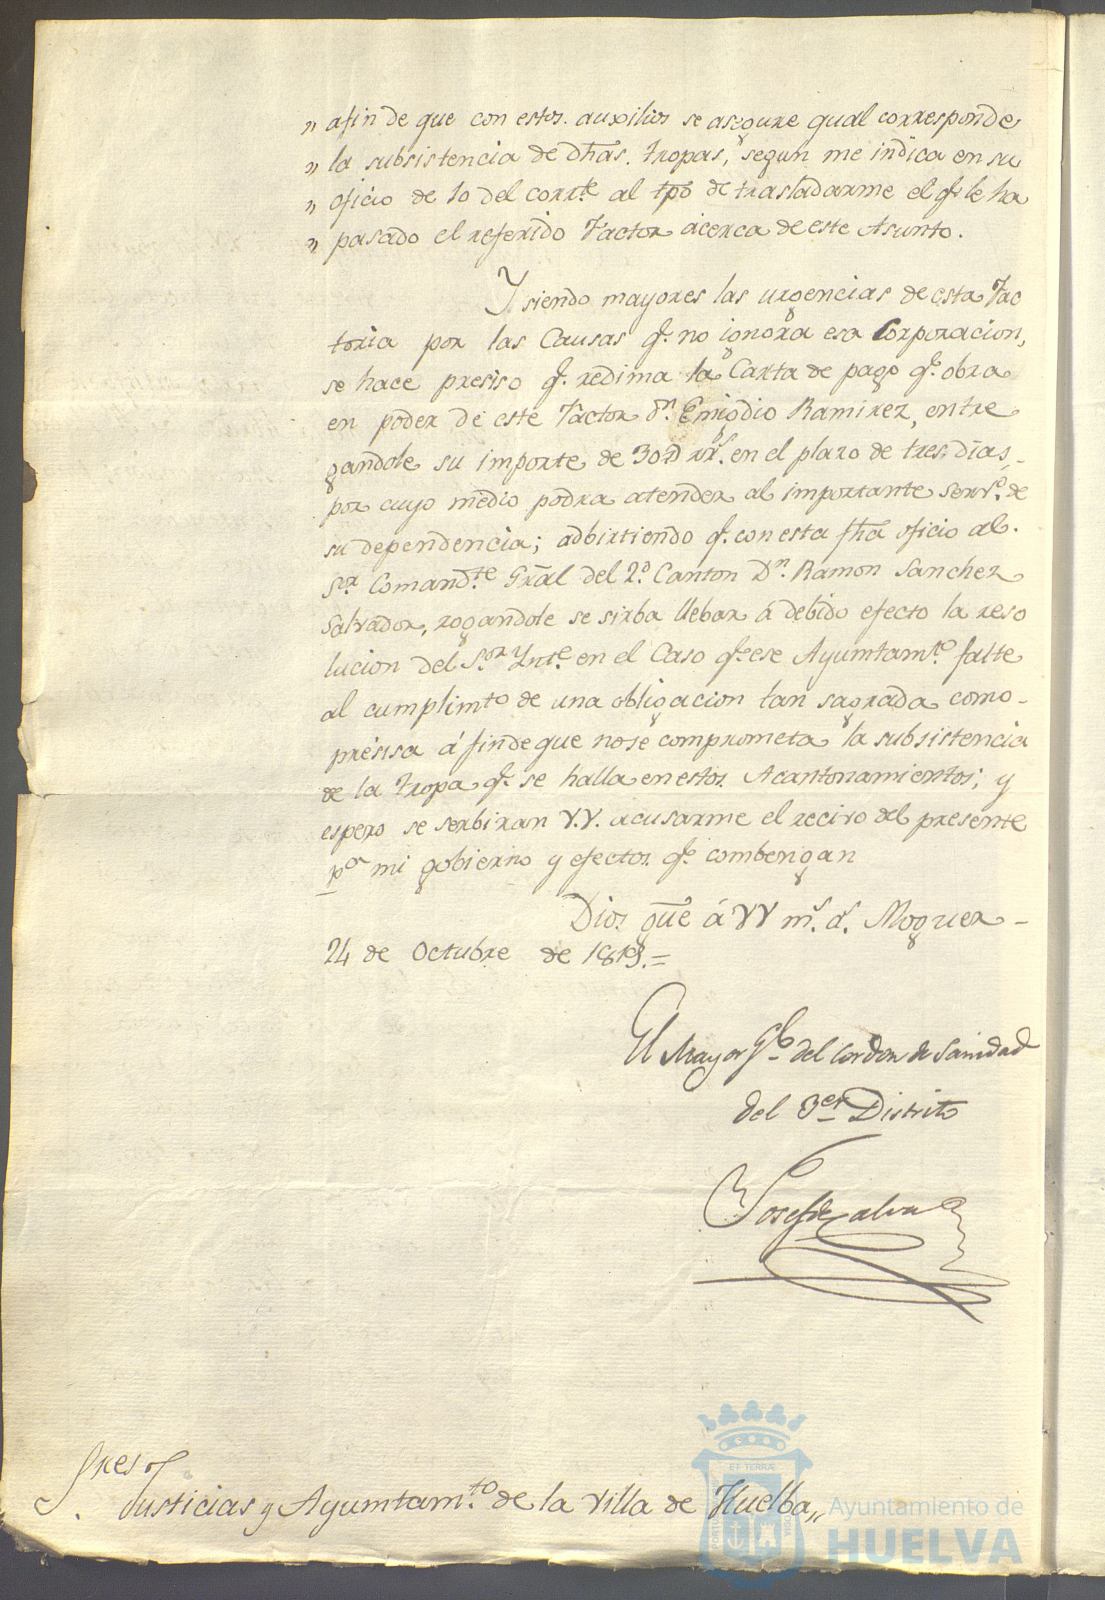 " afin de que con estos. auxilios se asegure qual corresponde
" la subsistencia de dhas. tropas, " segun me indica en su
" oficio de 10 del corrte. al tpo de trasladarme el qe. le ha
" pasado el referido Factor acerca de este Asunto.
Y siendo mayores las urgencias de esta Fac
toria por las Causas qe. no ignora esa Corporacion,
se hace presiso qe. redima la Carta de pago qe. obra
en poder de este Factor Dn. Emigdio Ramirez, entre
gandole su importe de 30D rrs. en el plazo de tres dias,
por cuyo medio podra atender al importante servo. de
su dependencia; adbirtiendo qe. con esta fha oficio al.
Sor. Comandte. Gral del 2º. Canton Dn. Ramon Sanchez
Salvador, rogandole se sirba llebar á debido efecto la reso
lucion del Sor. Ynte. en el Caso qe. ese Ayuntamto. falte
al cumplimto de una obligacion tan sagrada como
présisa á fin de que no se comprometa la subsistencia
de la tropa qe. se halla en estos. Acantonamientos; y
espero se serbiran V.V. acusarme el recivo del presente
pa. mi gobierno y efectos. qe. combengan
Dios gue á VV ms. as. Moguer
24 de Octubre de 1819.=
El Mayor Gl. del Cordon de Sanidad
del 3er Distrito
Josef de Calva
Sres.
Justicias y Ayuntamto. de la Villa de Huelba,,
ET TERRÆ
Ayuntamiento de
HUELVA